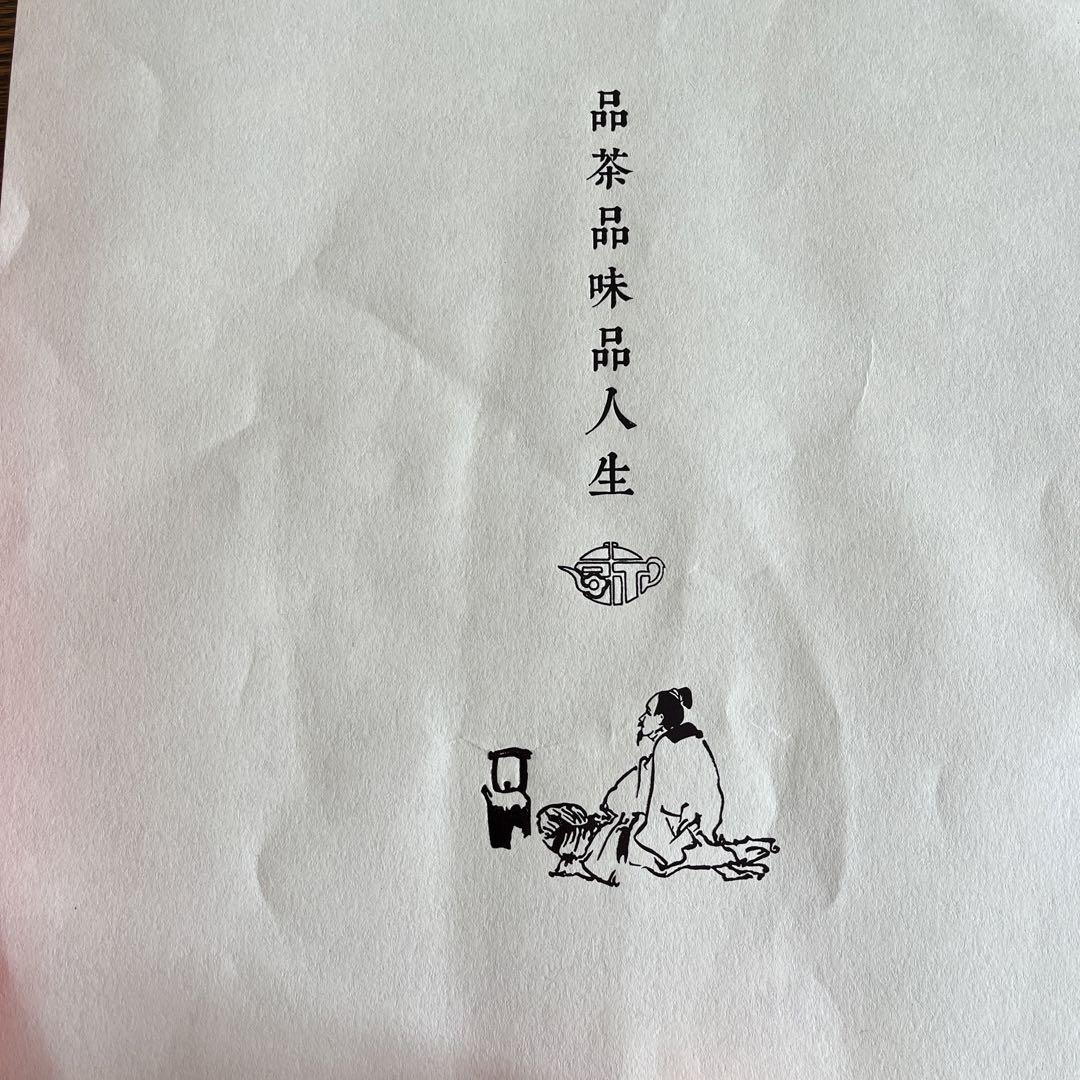 品茶品味品人生